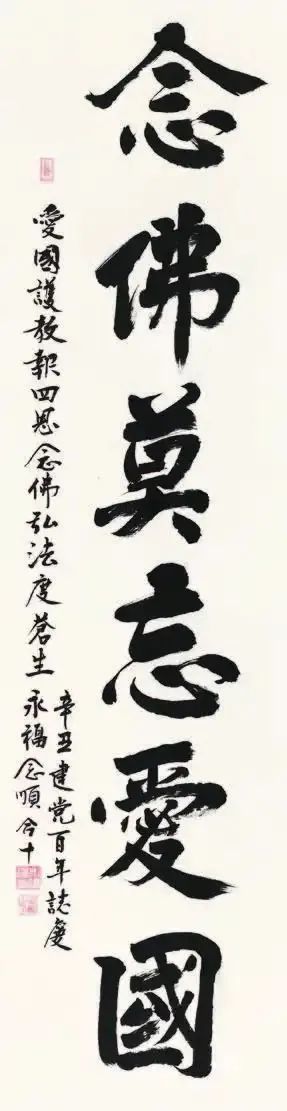 念佛莫忘愛國
辛丑建党百年誌慶
愛國護教報四恩念佛弘法度蒼生
永福念順合十